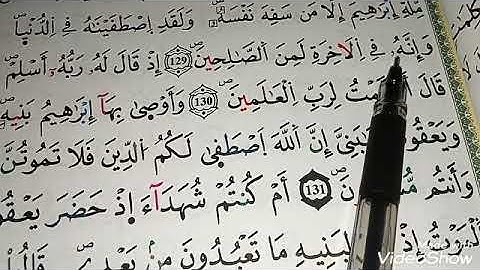 مِلَّةِ إِبْرَٰهِيمَ إِلَّا مَن سَفِهَ نَفْسَهُۥ وَلَقَدِ اِ۪صْطَفَيْنَٰهُ فِے اِ۬لدُّنْيَا
وَإِنَّهُۥ فِے اِ۬لَاخِرَةِ لَمِنَ اَ۬لصَّٰلِحِينَ 129 إِذْ قَالَ لَهُۥ رَبُّهُۥٓ أَسْلِمْ
قَالَ لِرَبِّ اِ۬لْعَٰلَمِينَ 130 وَأَوْص۪ىٰ بِهَآ إِبْرَٰهِيمُ بَنِيهِ
إِنَّ اَ۬للَّهَ اَ۪صْطَف۪ىٰ لَكُمُ اُ۬لدِّينَ فَلَا تَمُوتُنَّ
وَأَنتُم 131 أَمْ كُنتُمْ شُهَدَآءَ اِذْ حَضَرَ
لِبَنِيهِ مَا تَعْبُدُونَ مِنۢ
Made with
VideoShow